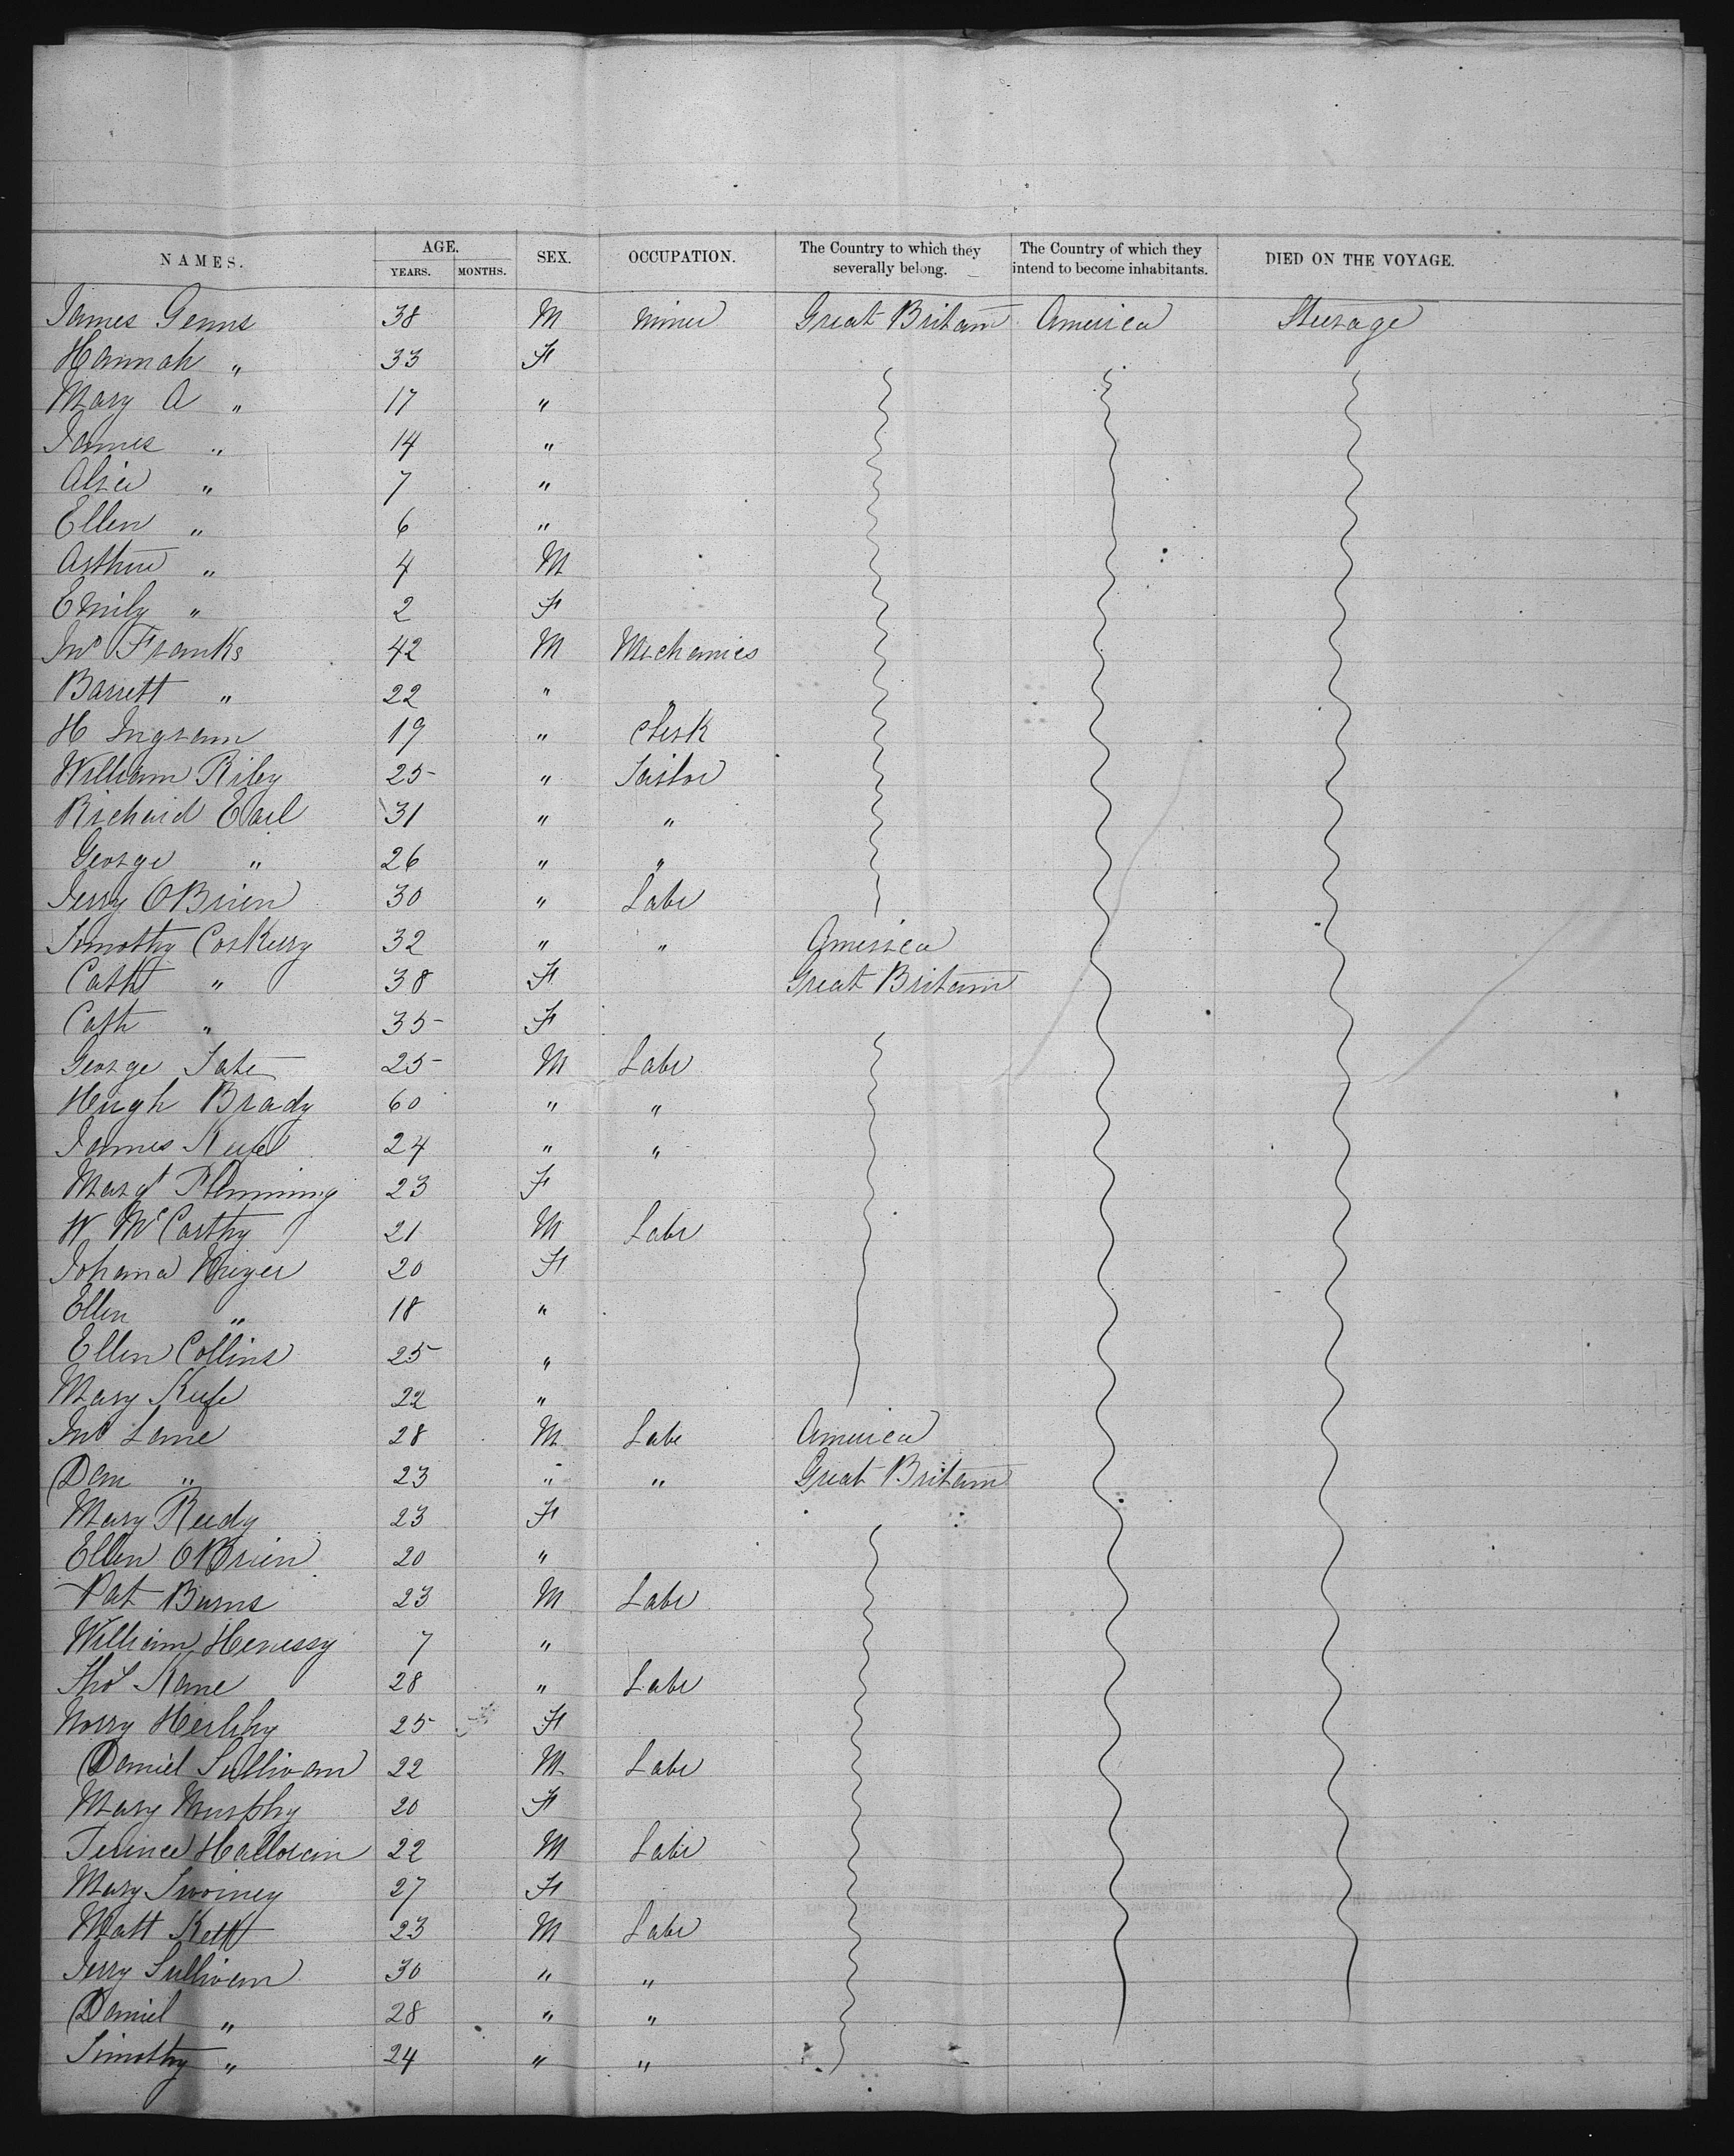 NAMES. AGE. SEX. OCCUPATION. The Country to which they severally belong. The Country of which they intend to become inhabitants. DIED ON THE VOYAGE.
YEARS. MONTHS.
James Genns 38 M miner Great Britain America Steerage
Hannah " 33 F
Mary A " 17 "
James " 14 "
Alice " 7 "
Ellen " 6 "
Arthur " 4 M
Emily " 2 F
Jno Franks 42 M Mechanics
Barrett " 22 " "
H Ingram 19 " Clerk
William Riley 25 " Sailor
Richard Earl 31 " "
George " 26 " "
Jerry OBrien 30 " Labr
Timothy Coskery 32 " " America
Cath " 38 F Great Britain
Cath " 35 F
George Tate 25 M Labr
Hugh Brady 60 " "
James Keefe 24 " "
Margt Flemming 23 F
W McCarthy 21 M Labr
Johana 20 F
Ellen " 18 "
Ellen Collins 25 "
Mary Keefe 22 "
Jno Lane 28 M Labr America
Dan " 23 " " Great Britain
Mary Reedy 23 F
Ellen OBrien 20 "
Pat Burns 23 M Labr
William Henessy 7 "
Thos Kane 28 " Labr
Norry Herlihy 25 F
Daniel Sullivan 22 M Labr
Mary Murphy 20 F
Terince Halloran 22 M Labr
Mary Twoiney 27 F
Matt 23 M Labr
Jerry Sullivan 30 " "
Daniel " 28 " "
Timothy " 24 " "